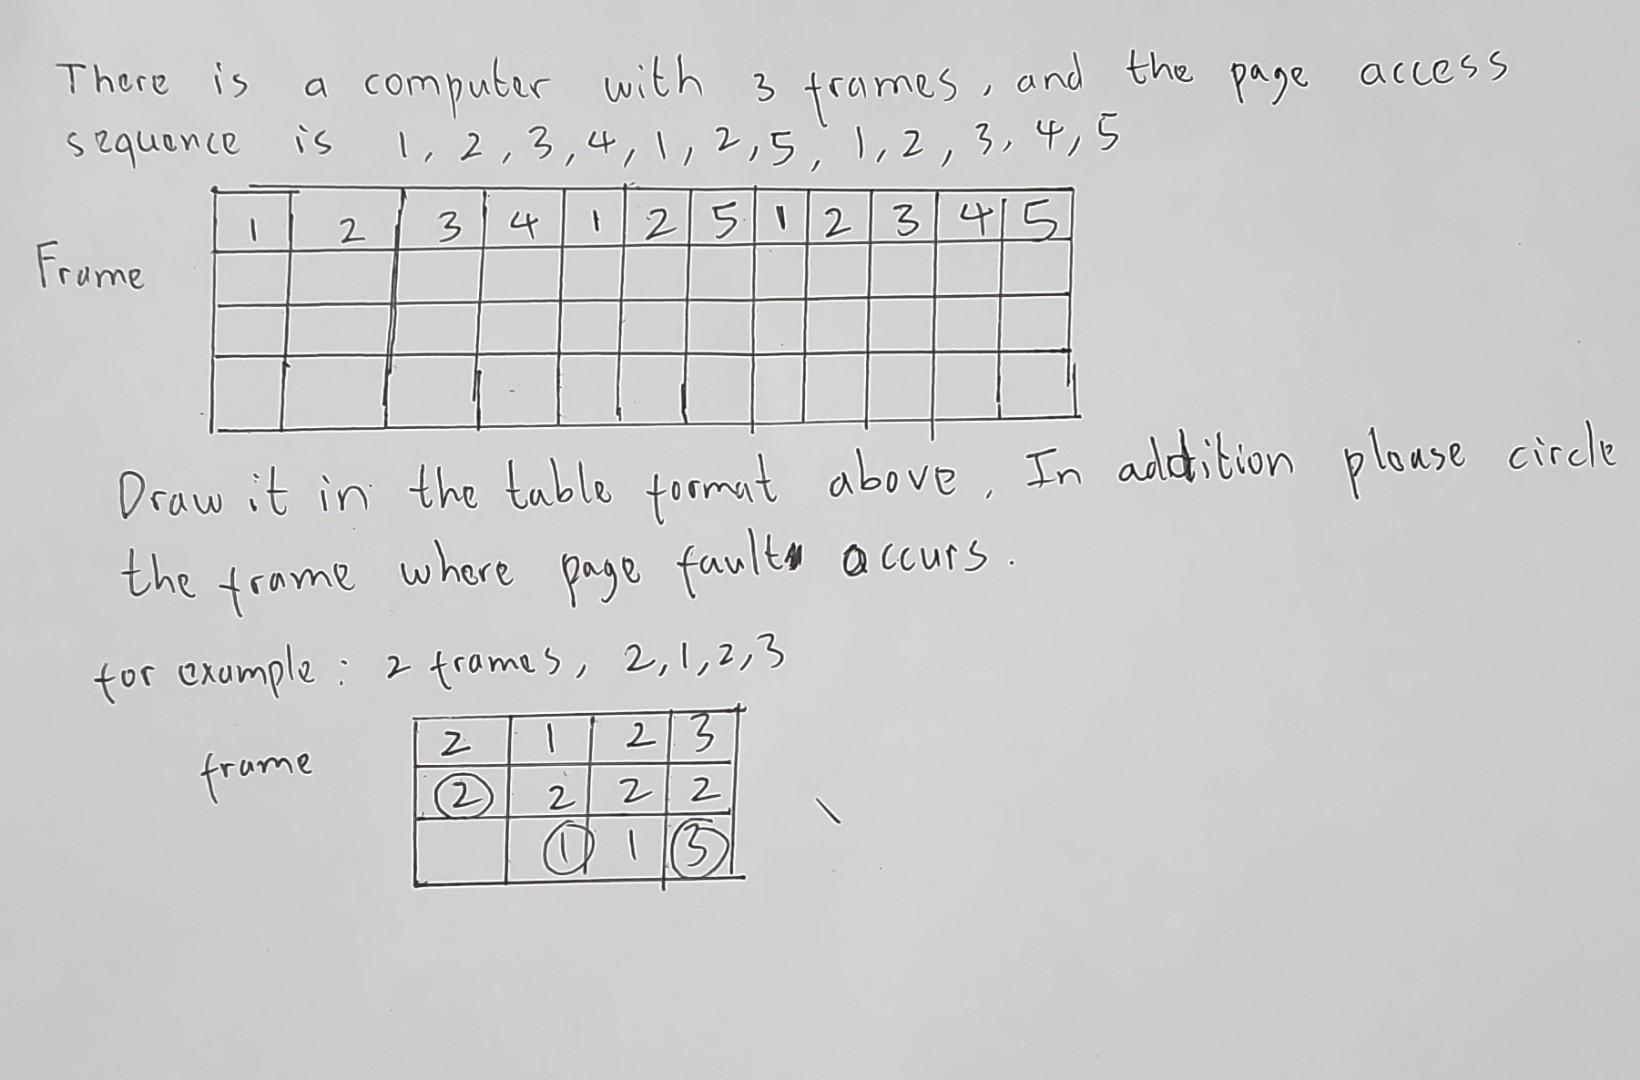 There is a computer with 3 frames, and the page access
sequence is 1, 2, 3, 4, 1, 2, 5, 1, 2, 3, 4, 5
1 2 3 4 1 2 5 1 2 3 4 5
Frame
Draw it in the table format above. In addition please circle
the frame where page fault occurs.
for example: 2 frames, 2, 1, 2, 3
2 1 2 3
frame
2 2 2 2
1 1 3